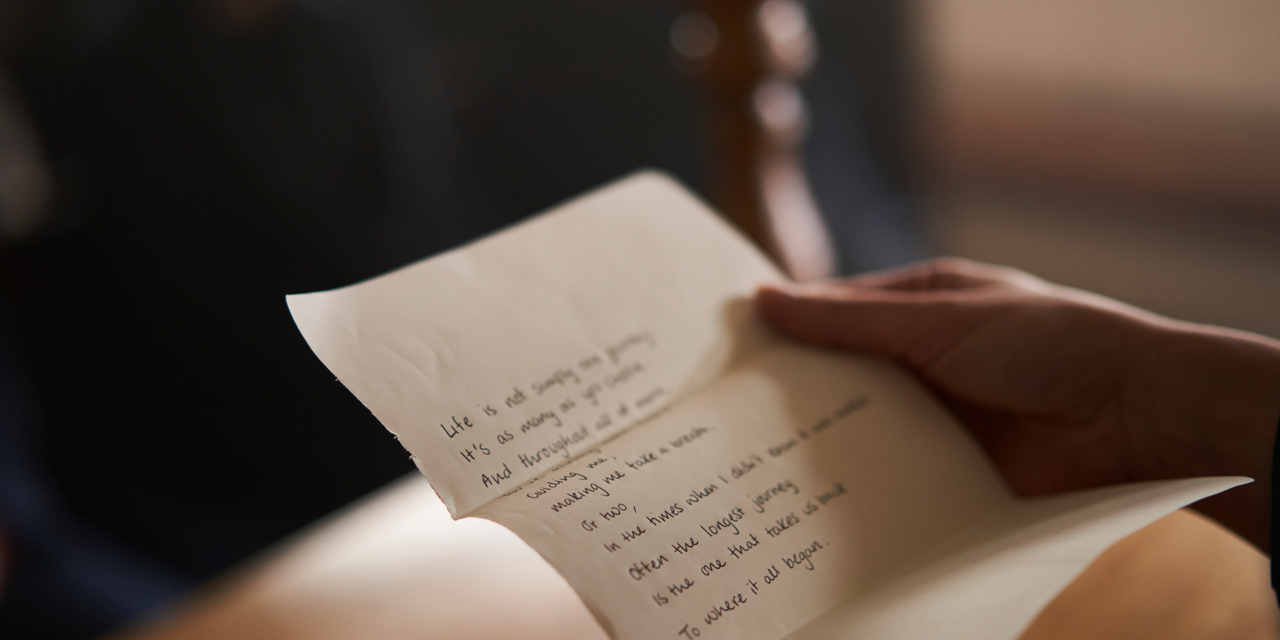 Life is not simply one journey
It's as many as you choose
And throughout all of mine
Guiding me,
making me take a break
Or two,
In the times when I didn't know it was needed
Often the longest journey
Is the one that takes us back
To where it all began.